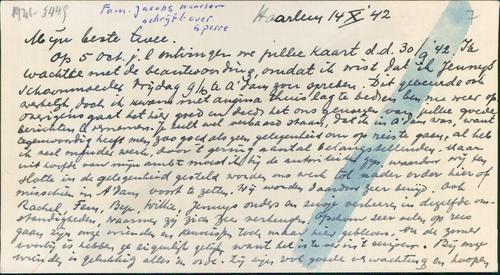 1941-3449
Fam. Jacobs Haarlem
schrijft over
Sperre
7
Haarlem 14 X '42
Mijne beste twee.
Op 5 Oct. j.l. ontvingen we jullie kaart d.d. 30/ '42. Ik
wachtte met de beantwoording, omdat ik wist dat ik Jenny's
Schoonmoeder Vrijdag 9/10 te A'dam zou spreken. Dit gebeurde ook
doch ik kwam met angina thuis, lag te bed en ben nu weer op
overigens gaat het hier goed en deed het ons genoegen van jullie goede
berichten te vernemen. Je zult wel verbaasd staan, dat ik in A'dam was, want
tegenwoordig heeft men zoo goed als geen gelegenheid om op reis te gaan, al heb
ik veel minder werk, door 't gering aantal belangstellenden. Maar
uit hoofde van mijn ambt moest ik bij de autoriteiten zijn, waardoor wij ten
slotte in de gelegenheid gesteld worden ons werk tot nader order hier of
misschien in A'dam voort te zetten. Wij worden daardoor zeer benijd. Ook
Rachel, Fam, Bep, Willie, Jenny's ouders en zusje verkeeren in dezelfde om-
standigheden, waarover zij zich zeer verheugen. Ofschoon zeer velen op reis
gaan, zijn onze vrienden en kennissen toch maar hier gebleven. Nu de zomer
voorbij is hebben ze eigenlijk gelijk, want het is te vrij net Bij onze
vrienden is gelukkig alles in orde. Wij zijn vol goede verwachting en hopen